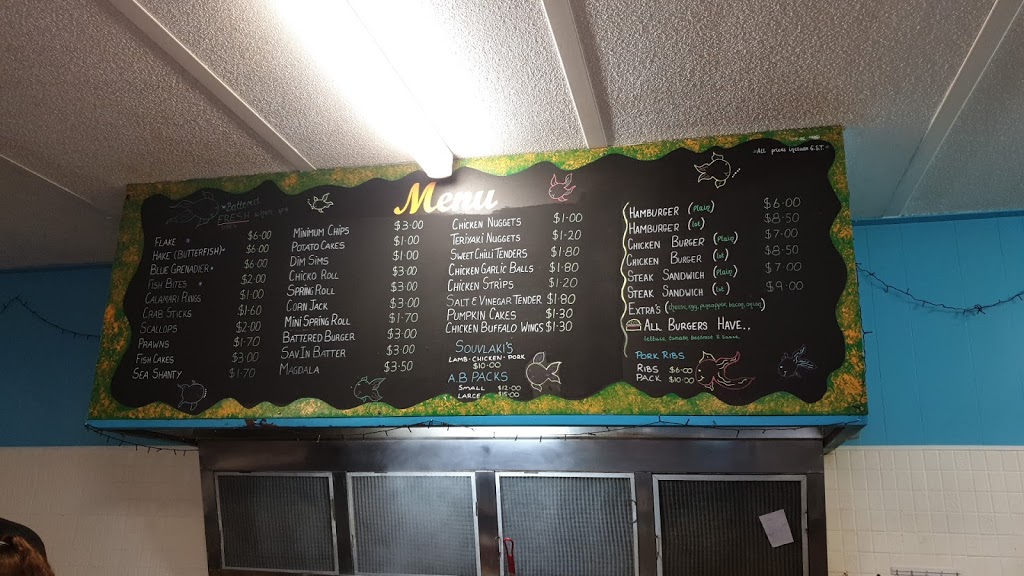 Menu
-All prices include G.S.T.-
*Battered
FRESH
FLAKE * $6.00
HAKE (BUTTERFISH)* $6.00
BLUE GRENADIER * $6.00
FISH BITES * $2.00
CALAMARI RINGS $1.00
CRAB STICKS $1.60
SCALLOPS $2.00
PRAWNS $1.70
FISH CAKES $3.00
SEA SHANTY $1.70
MINIMUM CHIPS $3.00
POTATO CAKES $1.00
DIM SIMS $1.00
CHICKO ROLL $3.00
SPRING ROLL $3.00
CORN JACK $3.00
MINI SPRING ROLL $1.70
BATTERED BURGER $3.00
SAV IN BATTER $3.00
MAGDALA $3.50
CHICKEN NUGGETS $1.00
TERIYAKI NUGGETS $1.20
SWEET CHILI TENDERS $1.80
CHICKEN GARLIC BALLS $1.80
CHICKEN STRIPS $1.20
SALT & VINEGAR TENDER $1.80
PUMPKIN CAKES $1.30
CHICKEN BUFFALO WINGS $1.30
SOUVLAKI'S
LAMB · CHICKEN · PORK
$10.00
A.B PACKS
SMALL $12.00
LARGE $15.00
HAMBURGER (Plain) $6.00
HAMBURGER (lot) $8.50
CHICKEN BURGER (Plain) $7.00
CHICKEN BURGER (lot) $8.50
STEAK SANDWICH (Plain) $7.00
STEAK SANDWICH (lot) $9.00
EXTRA'S (cheese, egg, pineapple, bacon, onion)
ALL BURGERS HAVE..
lettuce, tomato, beetroot & sauce
PORK RIBS
RIBS $6.00
PACK $10.00